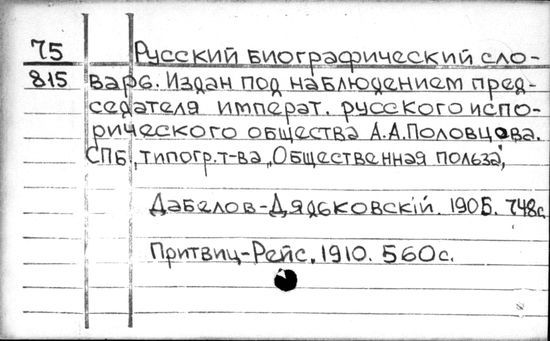 75 Русский биографический сло-
815 варь. Издан под наблюдением пред-
седателя императ. русского исто-
рического общества А.А.Половцова.
СПБ, типогр. т-ва „Общественная польза",
Дабелов-Дядьковскій. 1905. 748с.
Притвиц-Рейс, 1910. 560с.